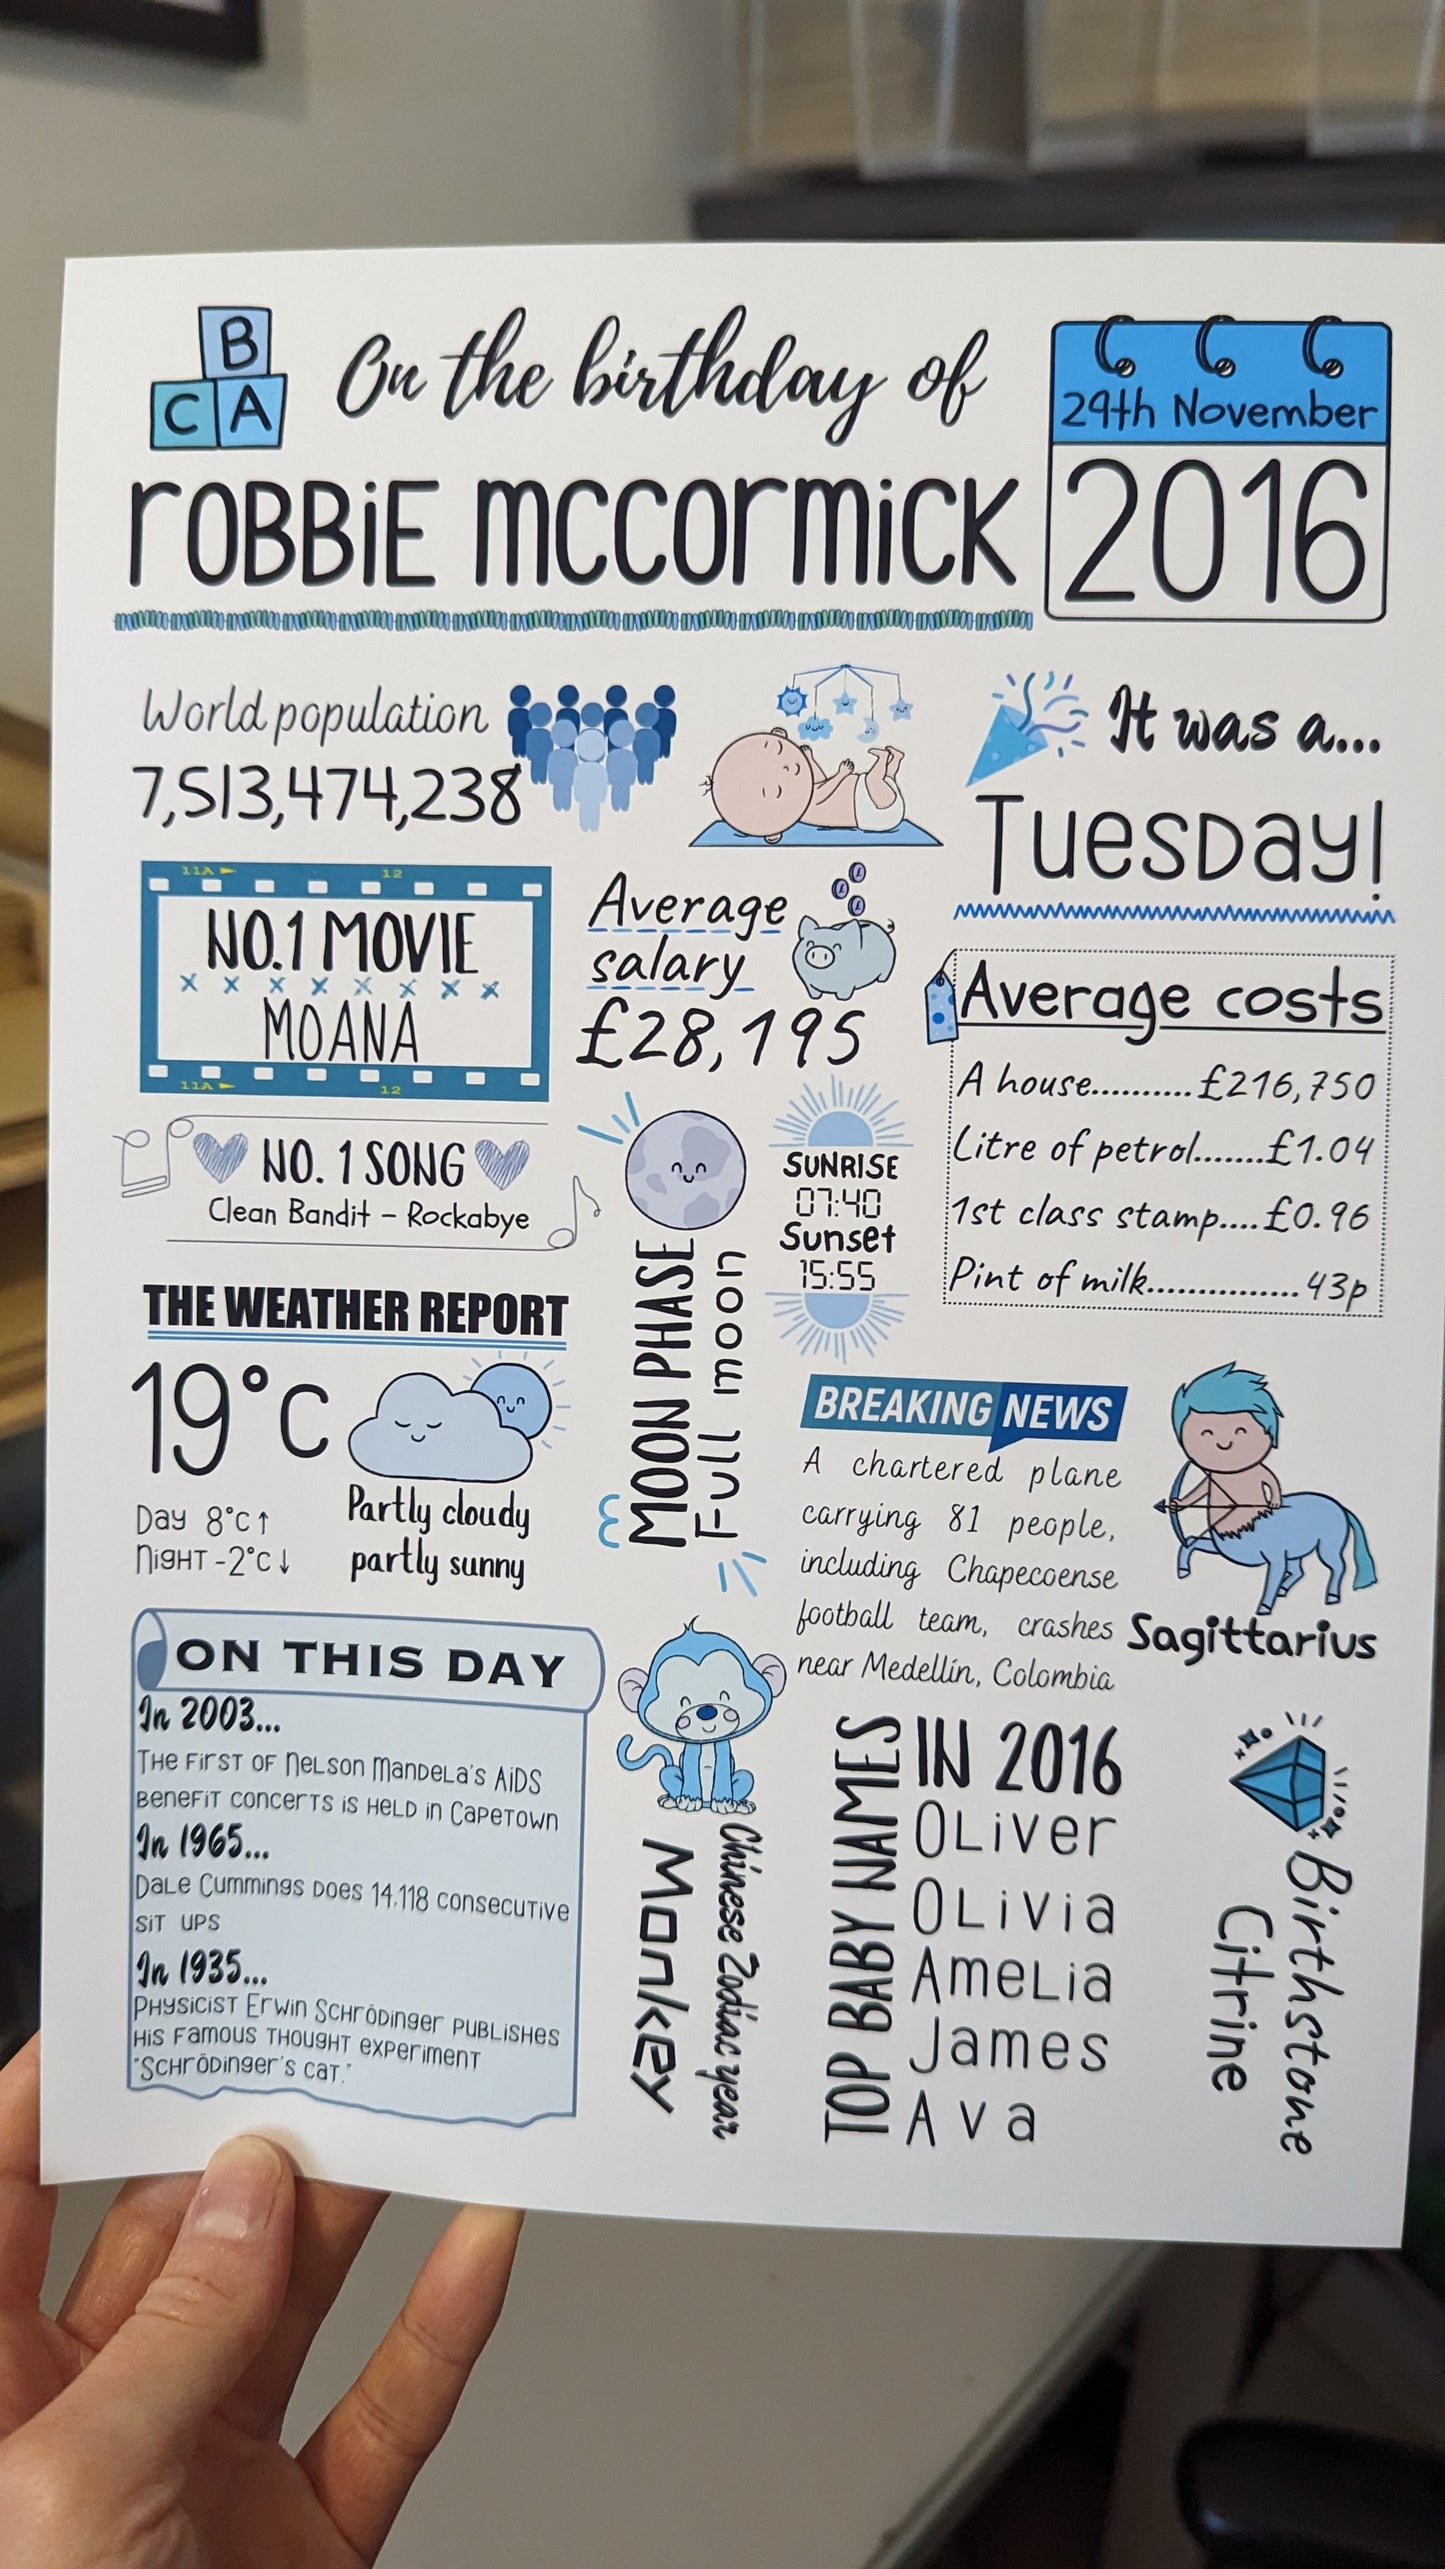 B
C A
On the birthday of
ROBBiE MCCORMiCK
29th November
2016
World population
7,513,474,238
It was a...
Tuesday!
11A 12
NO.1 MOVIE
x x x x x x x x
MOANA
11A 12
Average
salary
£28,195
Average costs
A house...........£216,750
Litre of petrol.......£1.04
1st class stamp....£0.96
Pint of milk...............43p
NO. 1 SONG
Clean Bandit - Rockabye
MOON PHASE
Full moon
SUNRISE
07:40
Sunset
15:55
THE WEATHER REPORT
19°C
Day 8°C↑
NIGHT -2°C↓
Partly cloudy
partly sunny
BREAKING NEWS
A chartered plane
carrying 81 people,
including Chapecoense
football team, crashes
near Medellín, Colombia
Sagittarius
ON THIS DAY
In 2003...
THE FIRST OF NELSON MANDELA'S AIDS
BENEFIT CONCERTS IS HELD IN CAPETOWN
In 1965...
DALE CUMMINGS DOES 14,118 CONSECUTIVE
SIT UPS
In 1935...
PHYSICIST ERWIN SCHRÖDINGER PUBLISHES
HIS FAMOUS THOUGHT EXPERIMENT
"SCHRÖDINGER'S CAT."
Chinese Zodiac year
Monkey
TOP BABY NAMES
IN 2016
OLiver
OLivia
AmeLia
James
Ava
Birthstone
Citrine